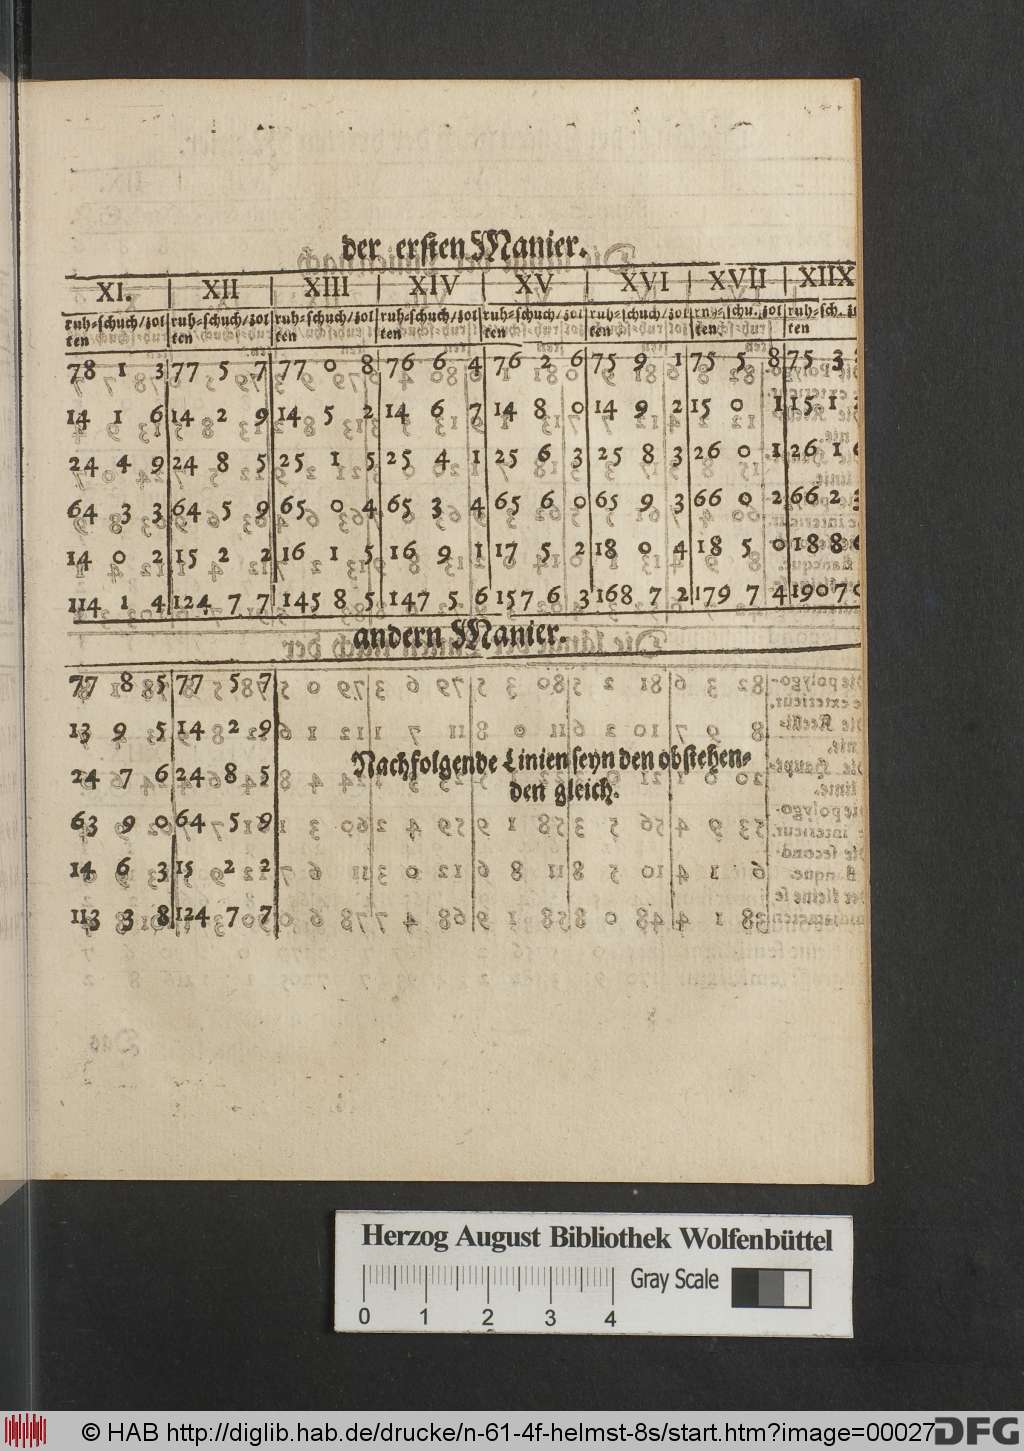 der ersten Manier.
XI. XII XIII XIV XV XVI XVII XIIX
ruh=schuch/zol ruh=schuch/zol ruh=schuch/zol ruh=schuch/zol ruh=schuch/zol ruh=schuch/zol schu. zol ruh=sch.
ten ten ten ten ten ten ten ten
78 1 3 77 5 7 77 0 8 76 6 4 76 2 6 75 9 1 75 5 8 75 3
14 1 6 14 2 9 14 5 2 14 6 7 14 8 0 14 9 2 15 0 1 15 1
24 4 9 24 8 5 25 1 5 25 4 1 25 6 3 25 8 3 26 0 1 26 1
64 3 3 64 5 9 65 0 4 65 3 4 65 6 0 65 9 3 66 0 2 66 2
14 0 2 15 2 2 16 1 5 16 9 1 17 5 2 18 0 4 18 5 0 18 8
114 1 4 124 7 7 145 8 5 147 5 6 157 6 3 168 7 2 179 7 4 190 7
andern Manier.
77 8 5 77 5 7
13 9 5 14 2 9
Nachfolgende Linien seyn den obstehen=
24 7 6 24 8 5
den gleich.
63 9 0 64 5 9
14 6 3 15 2 2
113 3 8 124 7 7
Herzog August Bibliothek Wolfenbüttel
Gray Scale
0 1 2 3 4
© HAB http://diglib.hab.de/drucke/n-61-4f-helmst-8s/start.htm?image=00027
DFG